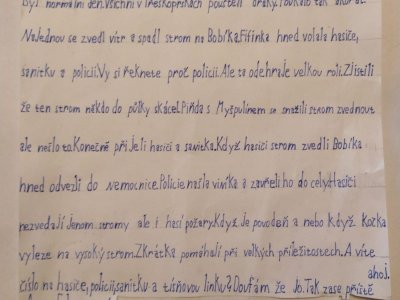 byl normální den. Všichni v Třeskoprskách pouštěli draky. Foukalo tak akorát.
Najednou se zvedl vítr a spadl strom na Bobíka. Fifinka hned volala hasiče,
sanitku a policii. Vy si řeknete proč policii. Ale ta odehraje velkou roli. Zjistili
že ten strom někdo do půlky skácel. Pinďa s Myšpulínem se snažili strom zvednout
ale nešlo to. Konečně přijeli hasiči a sanitka. Když hasiči strom zvedli Bobíka
hned odvezli do nemocnice. Policie našla viníka a zavřeli ho do cely. Hasiči
nezvedají jenom stromy ale i hasí požáry. Když je povodeň a nebo když kočka
vyleze na vysoký strom. Zkrátka pomáhají při velkých příležitostech. A víte
číslo na hasiče, policii, sanitku a tísňovou linku? Doufám že jo. Tak zase příště
ahoj.